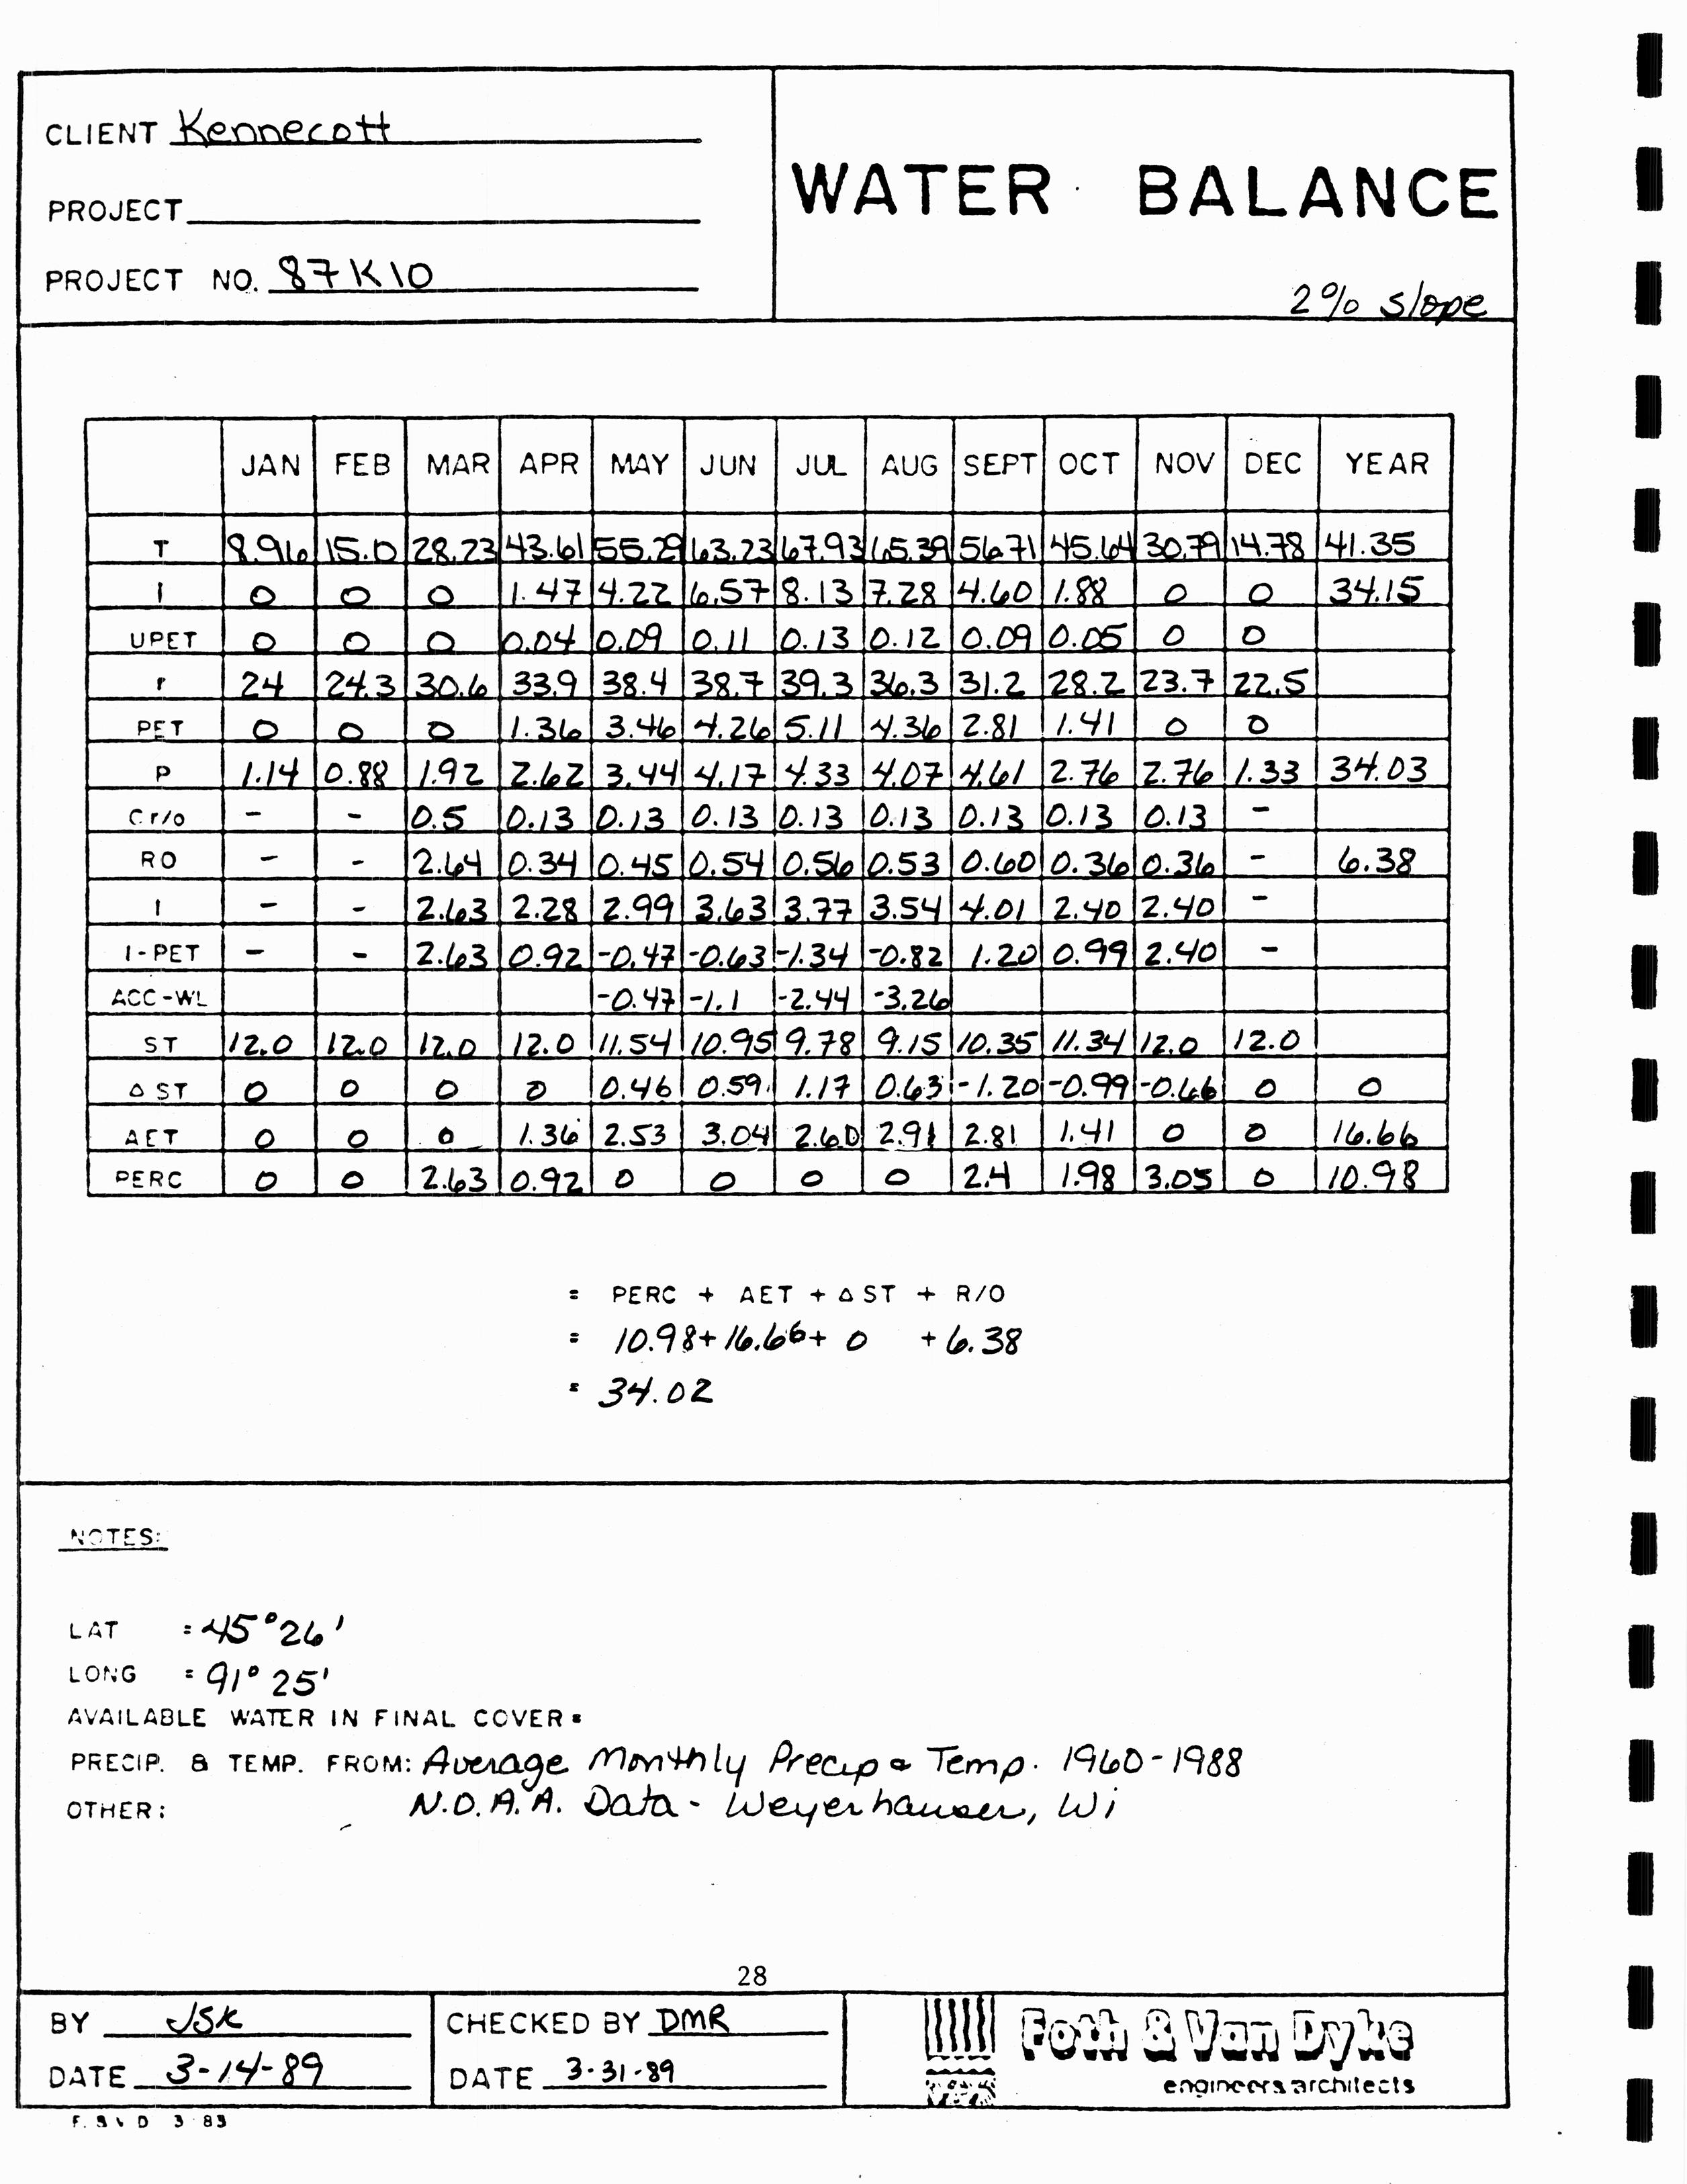 CLIENT Kennecott
PROJECT
PROJECT NO. 87K10
WATER BALANCE
2% slope
JAN FEB MAR APR MAY JUN JUL AUG SEPT OCT NOV DEC YEAR
T 8.96 15.0 28.23 43.61 55.29 63.23 67.93 65.39 56.71 45.64 30.79 14.78 41.35
I 0 0 0 1.47 4.22 6.57 8.13 7.28 4.60 1.88 0 0 34.15
UPET 0 0 0 0.04 0.09 0.11 0.13 0.12 0.09 0.05 0 0
r 24 24.3 30.6 33.9 38.4 38.7 39.3 36.3 31.2 28.2 23.7 22.5
PET 0 0 0 1.36 3.46 4.26 5.11 4.36 2.81 1.41 0 0
P 1.14 0.88 1.92 2.62 3.44 4.17 4.33 4.07 4.61 2.76 2.76 1.33 34.03
Cr/o - - 0.5 0.13 0.13 0.13 0.13 0.13 0.13 0.13 0.13 -
RO - - 2.64 0.34 0.45 0.54 0.56 0.53 0.60 0.36 0.36 - 6.38
I - - 2.63 2.28 2.99 3.63 3.77 3.54 4.01 2.40 2.40 -
I-PET - - 2.63 0.92 -0.47 -0.63 -1.34 -0.82 1.20 0.99 2.40 -
ACC-WL -0.47 -1.1 -2.44 -3.26
ST 12.0 12.0 12.0 12.0 11.54 10.95 9.78 9.15 10.35 11.34 12.0 12.0
Δ ST 0 0 0 0 0.46 0.59 1.17 0.63 -1.20 -0.99 -0.66 0 0
AET 0 0 0 1.36 2.53 3.04 2.60 2.91 2.81 1.41 0 0 16.66
PERC 0 0 2.63 0.92 0 0 0 0 2.4 1.98 3.05 0 10.98
= PERC + AET + Δ ST + R/O
= 10.98 + 16.66 + 0 + 6.38
= 34.02
NOTES:
LAT = 45°26'
LONG = 91° 25'
AVAILABLE WATER IN FINAL COVER =
PRECIP. & TEMP. FROM: Average Monthly Precip & Temp. 1960-1988
OTHER: N.O.A.A. Data - Weyerhauser, Wi
28
BY JSK
DATE 3-14-89
CHECKED BY DMR
DATE 3-31-89
Foth & Van Dyke
engineers architects
F. & V D 3 83